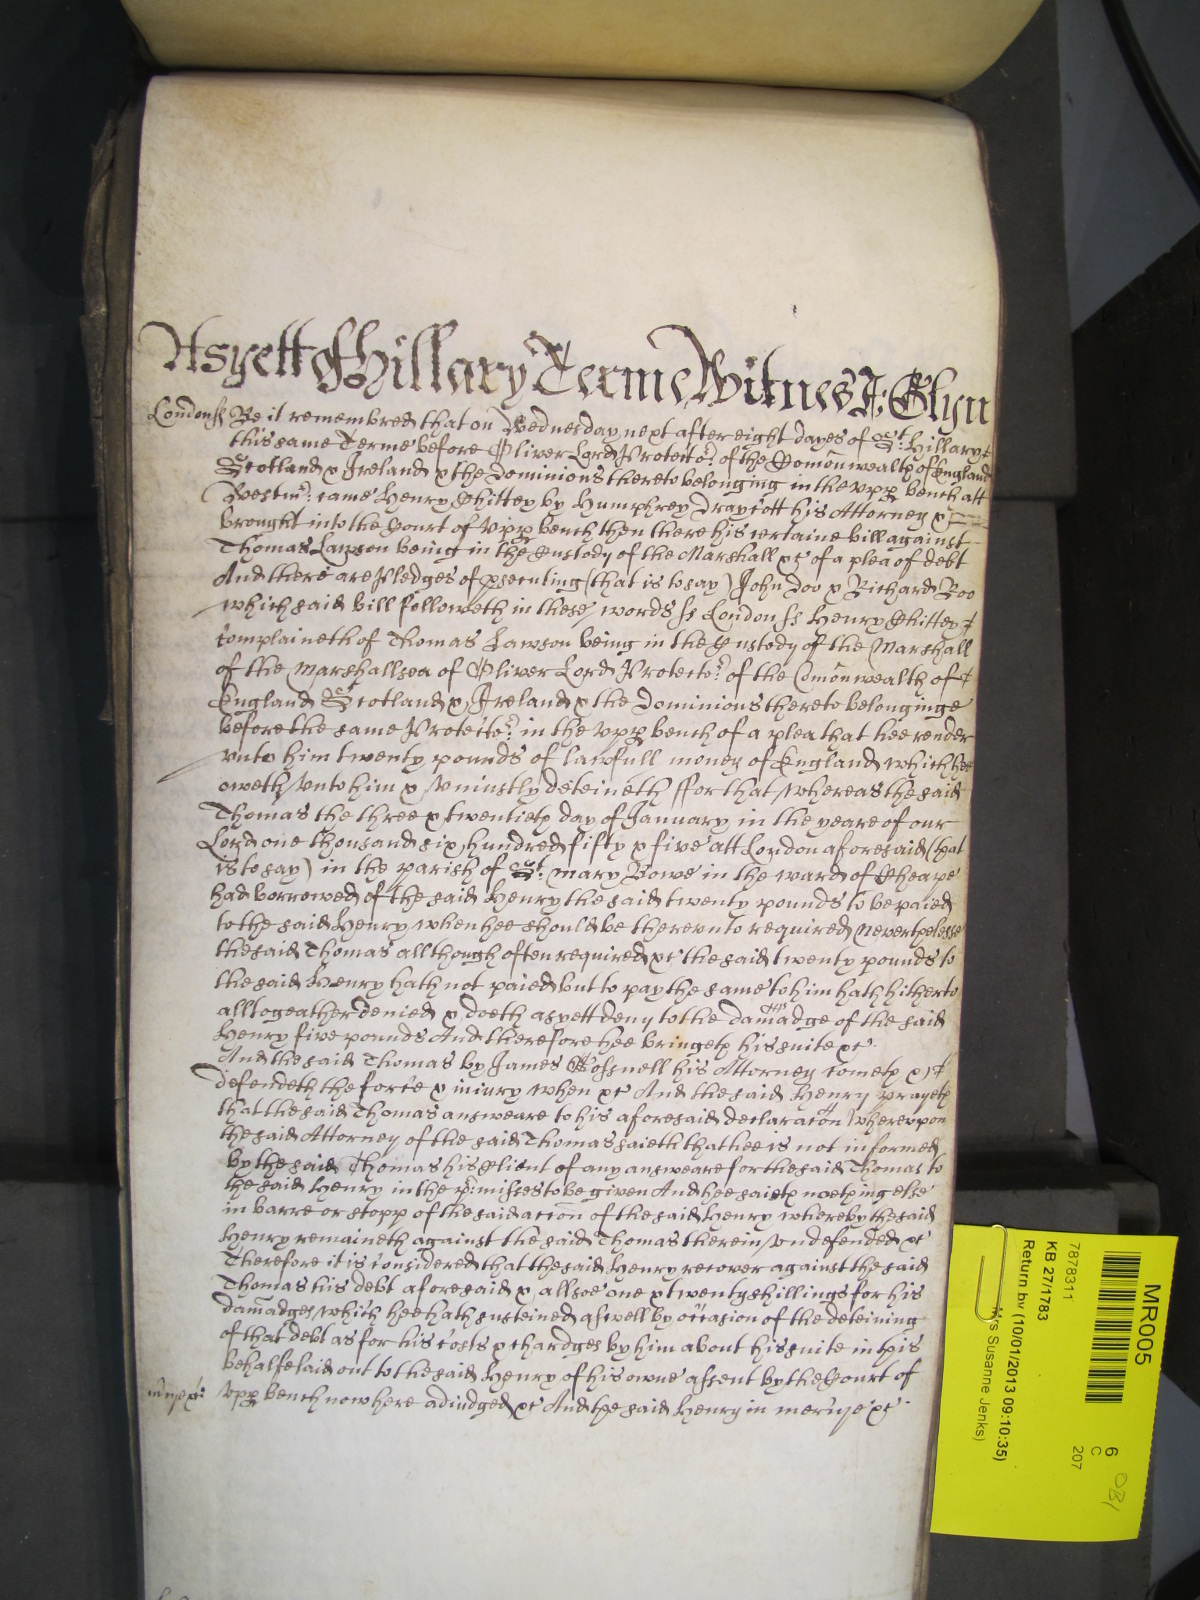 As yett of Hillary Terme Witnes J: Glyn
London ss Be it remembred that on Wednesday next after eight dayes of St. Hillary
this same Terme before Oliver Lord Protector of the Comonwealth of England
Scotland & Ireland & the Dominions thereto belonging in the upp bench att
Westmr. came Henry Chittey by Humphrey Draycott his Attorney &
brought into the Court of Upp bench then there his certaine bill against
Thomas Lawson being in the Custody of the Marshall &c of a plea of debt
And there are Pledges of psecuting (that is to say) John Doo & Richard Roo
which said bill followeth in these words ss London ss Henry Chittey
complaineth of Thomas Lawson being in the Custody of the Marshall
of the Marshallsea of Oliver Lord Protector of the Comonwealth of
England Scotland & Ireland & the Dominions thereto belonginge
before the same Protector in the upp bench of a plea that hee render
unto him twenty pounds of lawfull money of England which hee
oweth unto him & uniustly deteineth ffor that whereas the said
Thomas the three & twentieth day of January in the yeare of our
Lord one thousand six hundred fifty & five att London aforesaid (that
is to say) in the parish of St. Mary Bowe in the ward of Cheape
had borrowed of the said Henry the said twenty pounds to be paied
to the said Henry when hee should be thereunto required Neverthelesse
the said Thomas allthough often required &c the said twenty pounds to
the said Henry hath not paied but to pay the same to him hath hitherto
alltogeather denied & doeth as yett deny to the damadge of the said
Henry five pounds And therefore hee bringeth his suite &c
And the said Thomas by James Gosnell his Attorney cometh &
defendeth the force & iniury when &c And the said Henry prayeth
that the said Thomas answeare to his aforesaid declaracon Whereupon
the said Attorney of the said Thomas saieth that hee is not informed
by the said Thomas his Client of any answeare for the said Thomas to
the said Henry in the pr:misses to be given And hee saieth noething else
in barre or stopp of the said accion of the said Henry whereby the said
Henry remaineth against the said Thomas therein undefended &c
Therefore it is considered that the said Henry recover against the said
Thomas his debt aforesaid & allsoe one & twenty shillings for his
damadges which hee hath susteined aswell by occasion of the deteining
of that debt as for his costs & chardges by him about his suite in this
behalfe laid out to the said Henry of his owne assent by the Court of
Upp bench now here adiudged &c And the said Henry in mercye &c
MR005
7878311
KB 27/1783
Return by (10/01/2013 09:10:35)
Mrs Susanne Jenks)
6
C
207